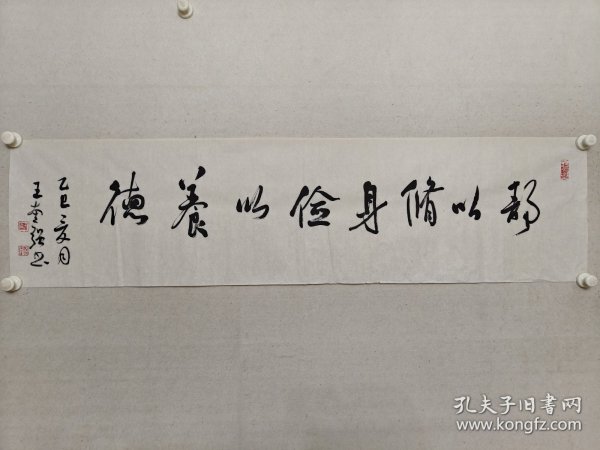 静以脩身儉以養德
乙巳之夏月
王学強书
孔夫子旧书网
www.kongfz.com